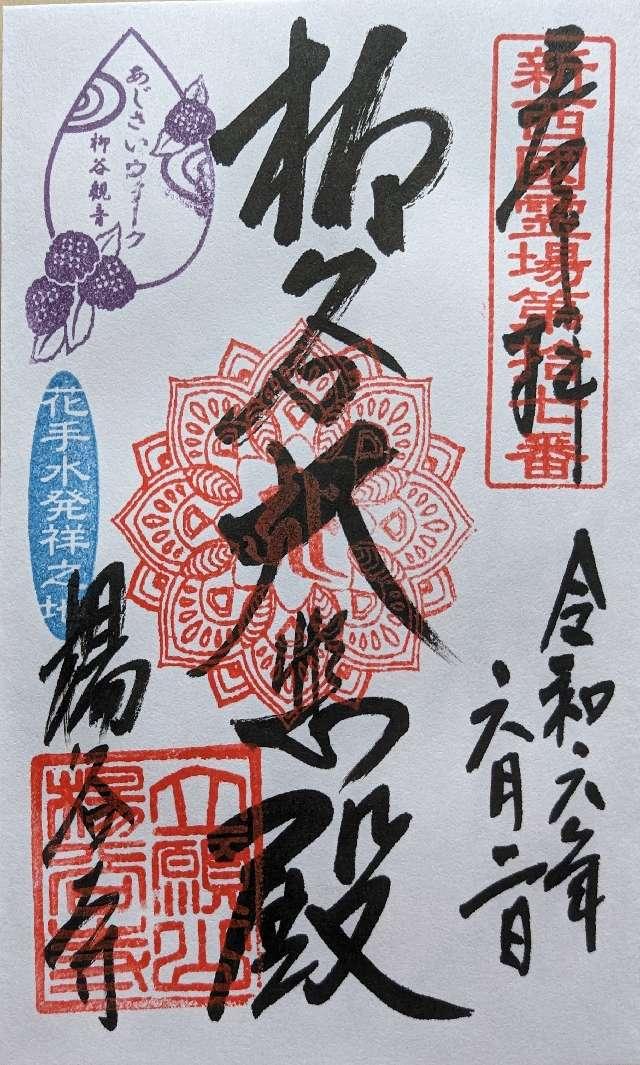 新西國霊場第拾七番
奉拝
令和六年
六月二日
柳谷大悲殿
あじさいウォーク
柳谷観音
花手水発祥之地
楊谷寺
立願山
楊谷寺